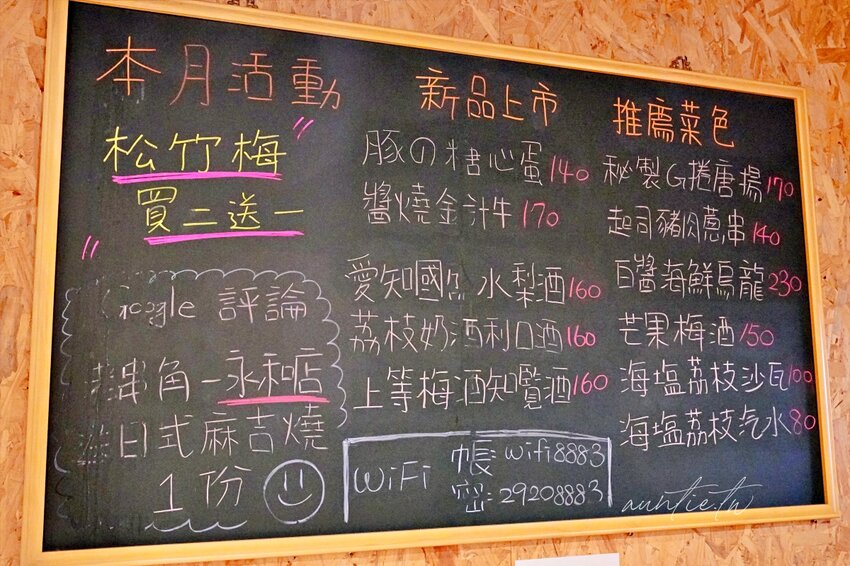 本月活動
松竹梅
買二送一
Google 評論
串角-永和店
日式麻吉燒
1份
新品上市
豚の糖心蛋 140
醬燒金汁牛 170
愛知國 水梨酒 160
荔枝奶酒利口酒 160
上等梅酒知覧酒 160
WiFi
帳: wifi8883
密: 29208883
推薦菜色
秘製G捲唐揚 170
起司豬肉蔥串 140
白醬海鮮烏龍 230
芒果梅酒 150
海塩荔枝沙瓦 100
海塩荔枝汽水 80
auntie.tw